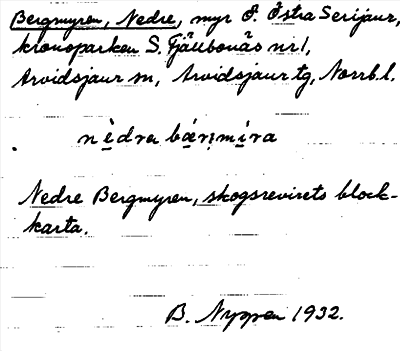 Bergmyren, Nedre, myr Ö. Östra Serijaur,
kronoparken S. Fjällbonäs nr 1,
Arvidsjaur sn, Arvidsjaur tg, Norrb. l.
nèdra bær₍mìra
Nedre Bergmyren, skogsrevirets block-
karta.
B. Nyppen 1932.